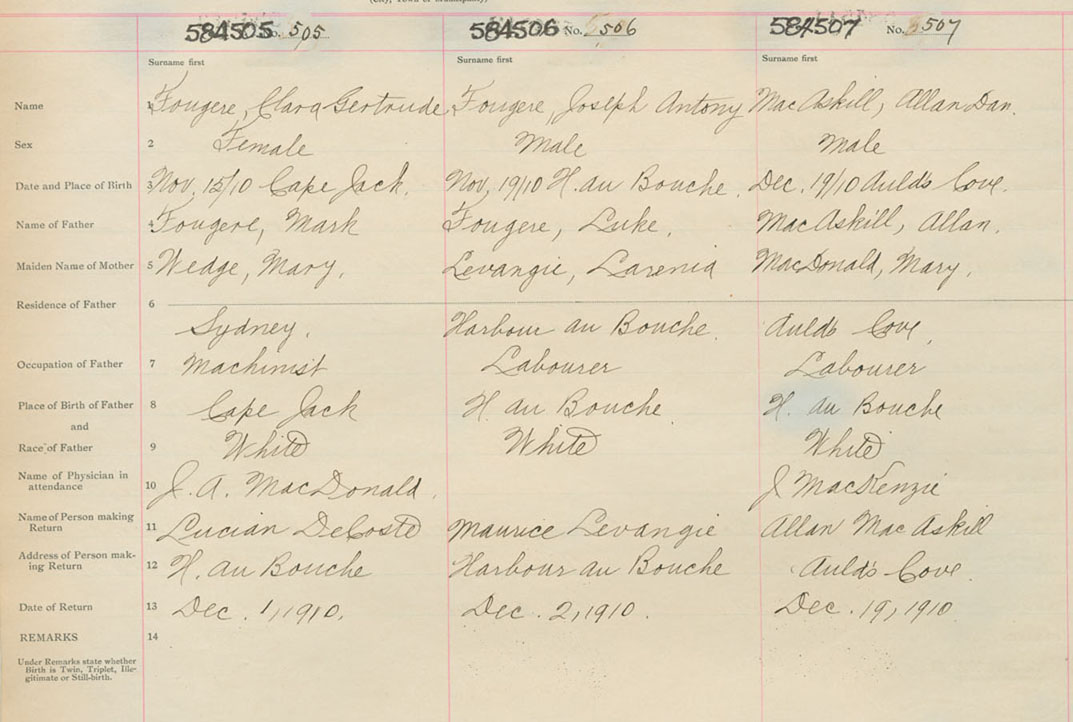 (City, Town or Municipality)
584505 No. 505 584506 No. 506 584507 No. 507
Surname first Surname first Surname first
Name 1 Fougere, Clara Gertrude Fougere, Joseph Antony MacAskill, Allan Dan.
Sex 2 Female Male Male
Date and Place of Birth 3 Nov. 15/10 Cape Jack. Nov. 19/10 H. au Bouche. Dec. 19/10 Aulds Cove.
Name of Father 4 Fougere, Mark Fougere, Luke. MacAskill, Allan.
Maiden Name of Mother 5 Wedge, Mary. Levangie, Larenia MacDonald, Mary.
Residence of Father 6
Sydney. Harbour au Bouche. Aulds Cove.
Occupation of Father 7 Machinist Labourer Labourer
Place of Birth of Father 8 Cape Jack H. au Bouche H. au Bouche
and
Race of Father 9 White White White
Name of Physician in
attendance 10 J. A. MacDonald. J MacKenzie
Name of Person making
Return 11 Lucian DeCoste Maurice Levangie Allan MacAskill
Address of Person mak-
ing Return 12 H. au Bouche Harbour au Bouche Auld's Cove.
Date of Return 13 Dec. 1, 1910. Dec. 2, 1910. Dec. 19, 1910
REMARKS 14
Under Remarks state whether
Birth is Twin, Triplet, Ille-
gitimate or Still-birth.